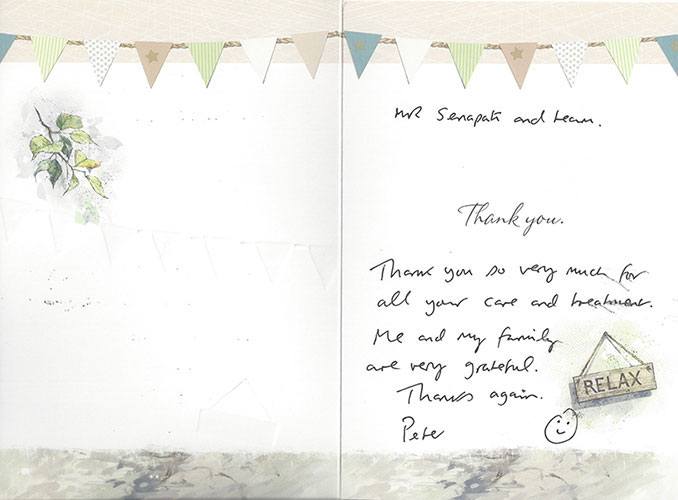 Mr Senapati and team.
Thank you.
Thank you so very much for
all your care and treatment.
Me and my family
are very grateful.
RELAX
Thanks again.
Pete